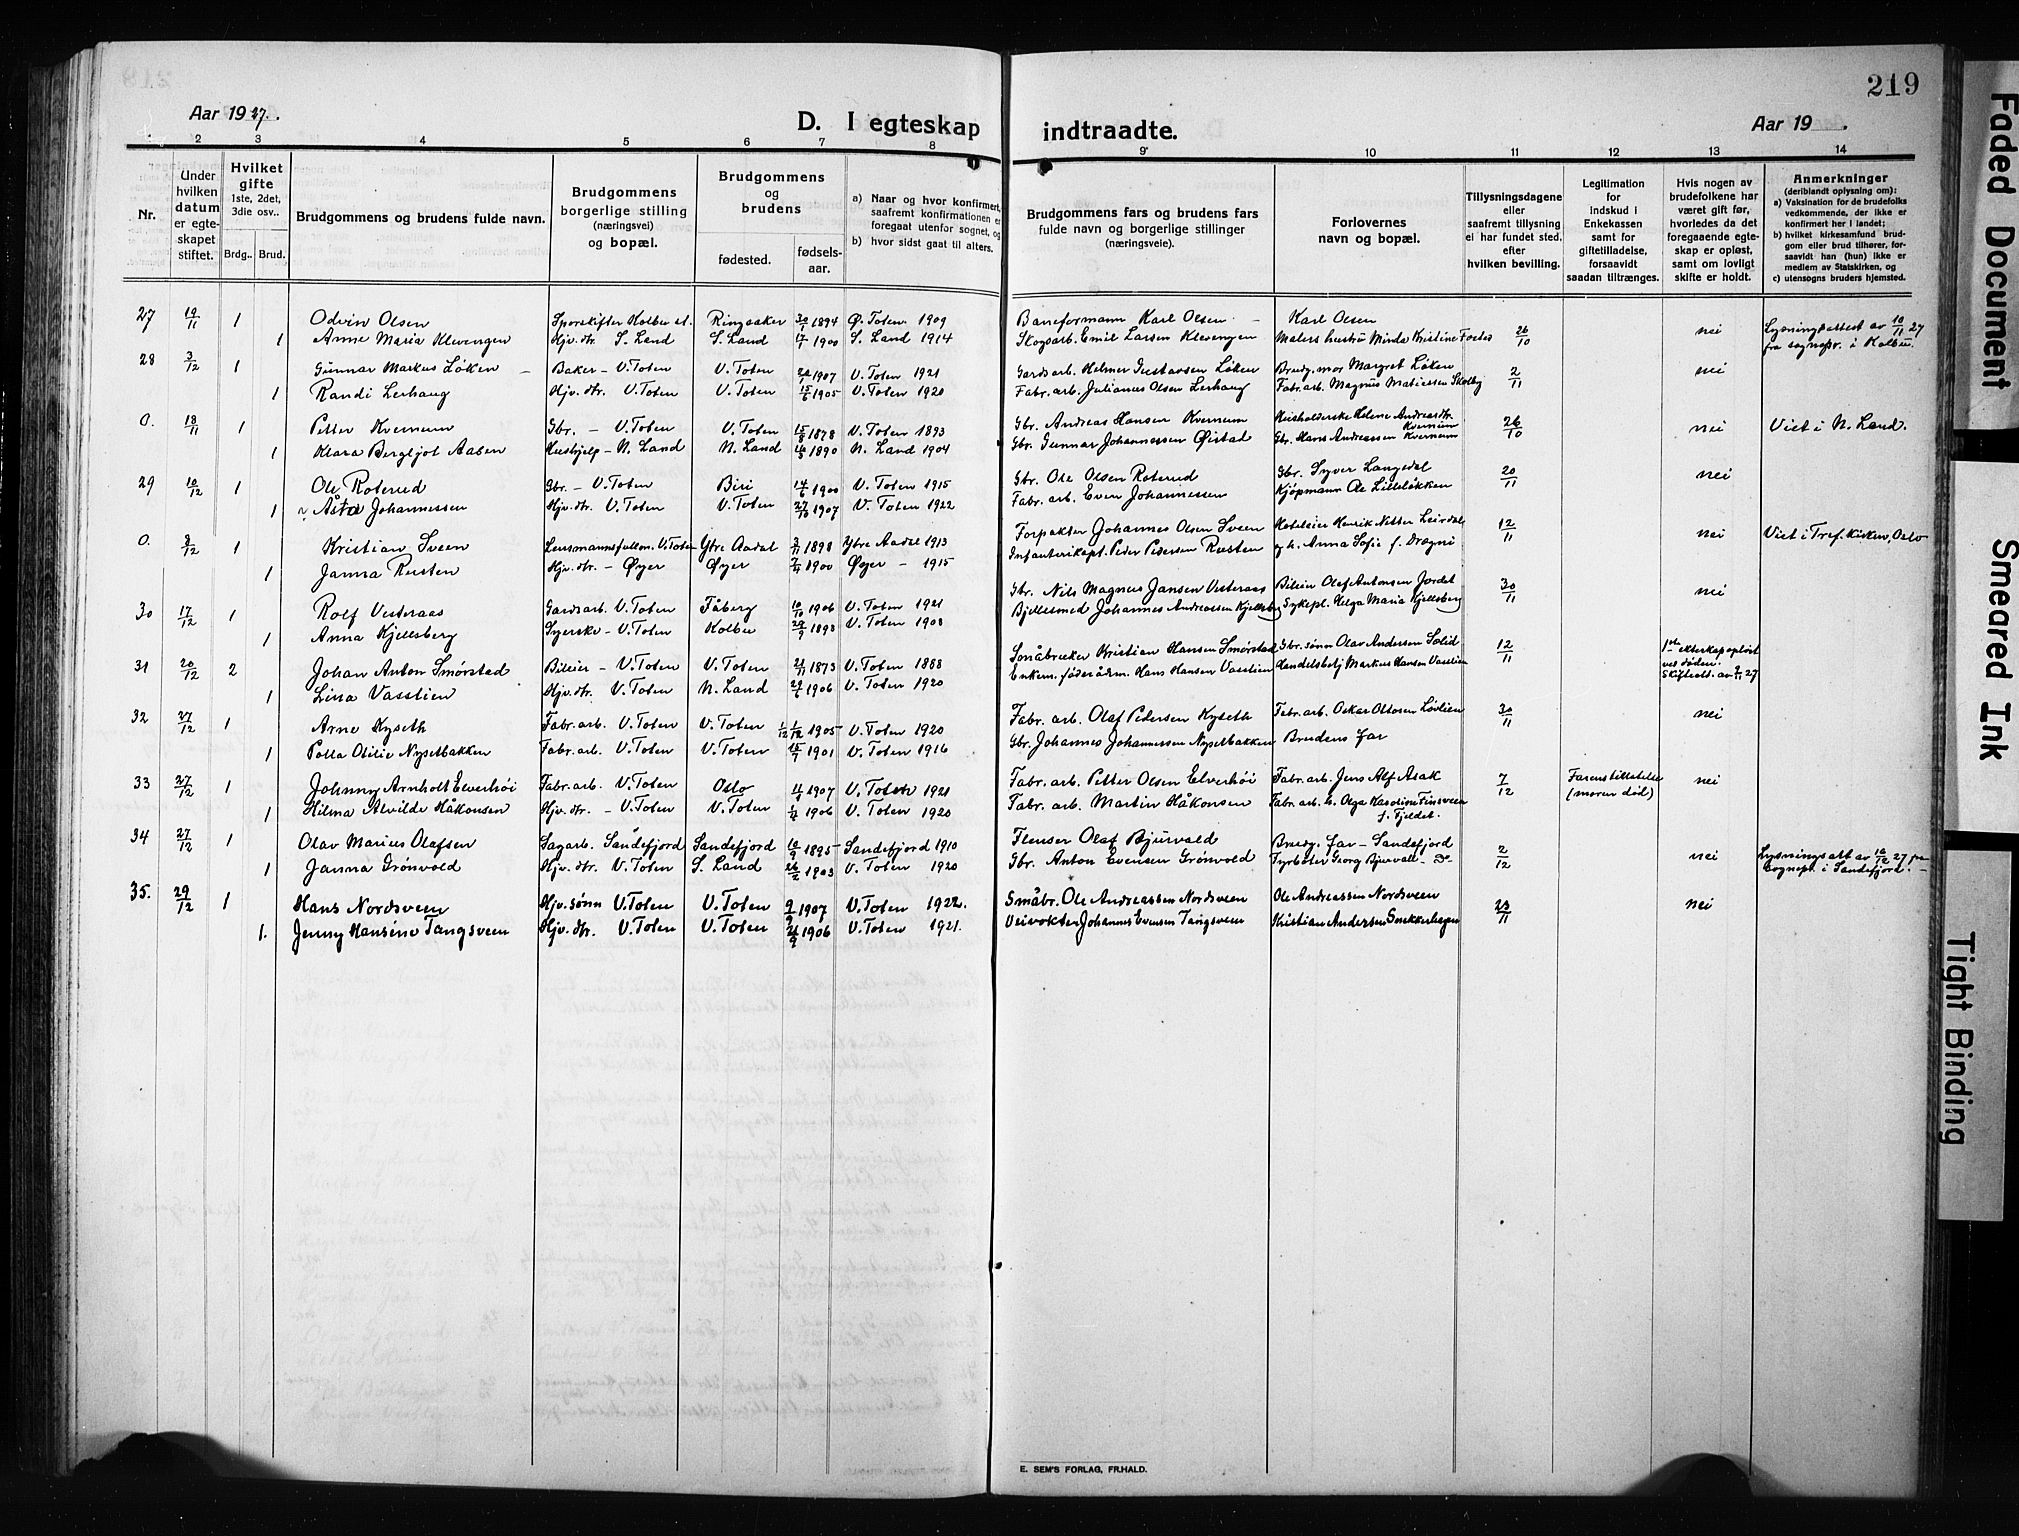 219
Aar 1927.
D. I egteskap indtraadte.
Aar 19 .
1 2 3 4 5 6 7 8 9 10 11 12 13 14
Nr.
Under hvilken datum er egteskapet stiftet.
Hvilket gifte 1ste, 2det, 3die osv..
Brdg.. Brud.
Brudgommens og brudens fulde navn.
Brudgommens borgerlige stilling (næringsvei) og bopæl.
Brudgommens og brudens
fødested.
fødsels-aar.
a) Naar og hvor konfirmert, saafremt konfirmationen er foregaat utenfor sognet, og
b) hvor sidst gaat til alters.
Brudgommens fars og brudens fars fulde navn og borgerlige stillinger (næringsveie).
Forlovernes navn og bopæl.
Tillysningsdagene eller saafremt tillysning ei har fundet sted, efter hvilken bevilling.
Legitimation for indskud i Enkekassen samt for giftetilladelse, forsaavidt saadan tiltrænges.
Hvis nogen av brudefolkene har været gift før, hvorledes da det foregaaende egteskap er opløst, samt om lovligt skifte er holdt.
Anmerkninger (deriblandt oplysning om): a) Vaksination for de brudefolks vedkommende, der ikke er konfirmert her i landet; b) hvilket kirkesamfund brudgom eller brud tilhører, forsaavidt han (hun) ikke er medlem av Statskirken, og c) utensogns bruders hjemsted.
27 19/11 1 Odvin Olsen Sporskifter Kolbu st. Ringsaker 30/1 1894 Ø. Toten 1909 Baneformann Karl Olsen Karl Olsen
1 Anne Maria Klevengen Hjv. dtr. S. Land S. Land 17/1 1900 S. Land 1914 Skogsarb. Emil Larsen Klevengen Malers hustru Minda Kristine 26/10 nei Lysningsattest av 10/11 27 fra sognepr. i Kolbu.
28 3/12 1 Gunnar Markus Løken Baker – V. Toten V. Toten 1907 V. Toten 1921 Gardsarb. Helmer Gustavsen Løken Brudg. mor Margret Løken
1 Randi Lerhaug Hjv. dtr. V. Toten V. Toten 15/6 1905 V. Toten 1920 Fabr. arb. Julianus Olsen Lerhaug Fabr. arb. Magnus Matiessen Skolby 2/11 nei
0. 18/11 1 Petter Kvernum Gbr. – V. Toten V. Toten 15/8 1878 V. Toten 1893 Gbr. Andreas Hansen Kvernum Husholderske Helene Andreasdtr. Kvernum
1 Klara Bergljot Aasen Hushjelp – N. Land N. Land 1890 N. Land 1904 Gbr. Gunnar Johannessen Øistad Gbr. Hans Andreassen Kvernum 26/10 nei Viet i N. Land.
29 10/12 1 Ole Roterud Gbr. – V. Toten Biri 14/6 1900 V. Toten 1915 Gbr. Ole Olsen Roterud Gbr. Syver Langsdal
1 Åsta Johannessen Hjv. dtr. V. Toten V. Toten 27/10 1907 V. Toten 1922 Fabr. arb. Even Johannessen Kjøpmann Ole Lilleløkken 20/11 nei
0. 8/12 1 Kristian Sveen Lensmannsfullm. V. Toten Ytre Aadal 3/11 1898 Ytre Aadal 1913 Forpakter Johannes Olsen Sveen Hoteleier Henrik Nitter Leirdal
1 Janna Rusten Hjv. dtr. – Øyer Øyer 1900 Øyer – 1915 Infanterikapt. Peder Pedersen Rusten og h. Anna Sofie f. Drægni 12/11 nei Viet i Tref. kirken, Oslo
30 17/12 1 Rolf Vesteraas Gardsarb. V. Toten Fåberg 10/10 1906 V. Toten 1921 Gbr. Nils Magnus Jansen Vesteraas Bileier Olaf Antonsen Jordet
1 Anna Kjellsberg Syerske – V. Toten Kolbu 29/9 1893 V. Toten 1908 Bjellesmed Johannes Andreassen Kjellsberg Sykepl. Helga Maria Kjellsberg 30/11 nei
31 20/12 2 Johan Anton Smørstad Bileier – V. Toten V. Toten 21/11 1873 V. Toten 1888 Småbruker Kristian Hansen Smørstad Gbr. sønn Olav Andersen Sølid
1 Lina Vasstien Hjv. dtr. V. Toten N. Land 29/6 1906 V. Toten 1920 Enkem. føderådm. Hans Hansen Vasstien Handelsbetj Markus Hansen Vasstien 12/11 1ste ekteskap opløst ved døden. Skifteatt. av 2/11 27
32 27/12 1 Arne Kyseth Fabr. arb. V. Toten V. Toten 1/12 1905 V. Toten 1920 Fabr. arb. Olaf Pedersen Kyseth Fabr. arb. Oskar Ottosen Løvlien
1 Polla Otilie Nysetbakken Fabr. arb. V. Toten V. Toten 15/7 1901 V. Toten 1916 Gbr. Johannes Johannessen Nysetbakken Brudens far 30/11 nei
33 27/12 1 Johnny Arnholt Elverhøi Fabr. arb. V. Toten Oslo 1907 V. Toten 1921 Fabr. arb. Petter Olsen Elverhöi Fabr. arb. Jens Alf Asak
1 Hilma Alvilde Håkonsen Hjv. dtr. – V. Toten V. Toten 1906 V. Toten 1920 Fabr. arb. Martin Håkonsen Fabr. arb. h. Olga Karoline Finsveen f. Fjeldet. 7/12 Farens tillatelse (moren død) nei
34 27/12 1 Olav Marius Olafsen Sagarb. Sandefjord Sandefjord 10/9 1895 Sandefjord 1910 Flenser Olaf Bjurvald Brudg. far – Sandefjord
1 Janna Grönvold Hjv. dtr. V. Toten S. Land 26/2 1903 V. Toten 1920 Gbr. Anton Evensen Grönvold Fyrbøter Georg Bjurvall – do 2/12 nei Lysningsatt av 10/12 27 fra sognepr. i Sandefjord. –
35. 29/12 1 Hans Nordsveen Hjv. sønn V. Toten V. Toten 9/9 1907 V. Toten 1922. Småbr. Ole Andreassen Nordsveen Ole Andreassen Nordsveen
1. Jenny Hansine Tangsveen Hjv. dtr. V. Toten V. Toten 21/9 1906 V. Toten 1921. Veivokter Johannes Evensen Tangsveen Kristian Andersen Snekkerhagen 23/11 nei
E. SEM'S FORLAG, FR.HALD.
Faded Document
Smeared Ink
Tight Binding